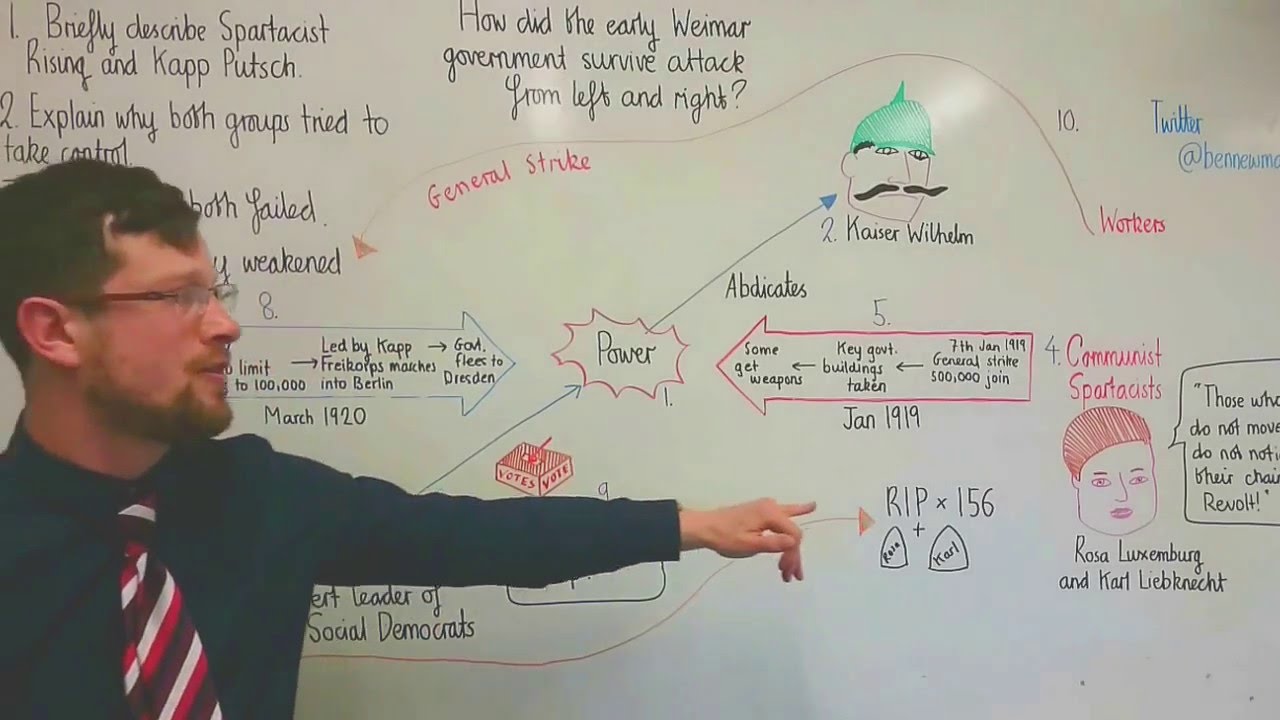 1. Briefly describe Spartacist
Rising and Kapp Putsch.
2. Explain why both groups tried to
take control.
both failed.
weakened
How did the early Weimar
government survive attack
from left and right?
General Strike
2. Kaiser Wilhelm
10.
Twitter
@bennewma
Workers
Abdicates
8.
limit
to 100,000
→ Led by Kapp
Freikorps marches
into Berlin
→ Govt.
flees to
Dresden
March 1920
Power
1.
5.
7th Jan 1919
General strike
500,000 join
← Key govt.
buildings
taken
← Some
get
weapons
Jan 1919
4. Communist
Spartacists
"Those who
do not move
do not noti
their chain
Revolt!"
Rosa Luxemburg
and Karl Liebknecht
VOTES VOTE
9
RIP × 156
+
Rosa
Karl
ert leader of
Social Democrats